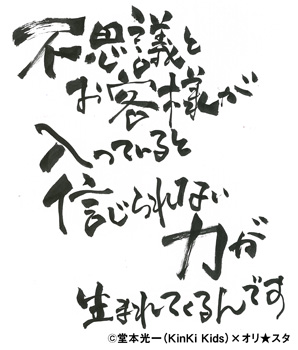 不思議と
お客様が
入っていると
信じられない
力が
生まれてくるんです
©堂本光一(KinKi Kids)×オリ★スタ